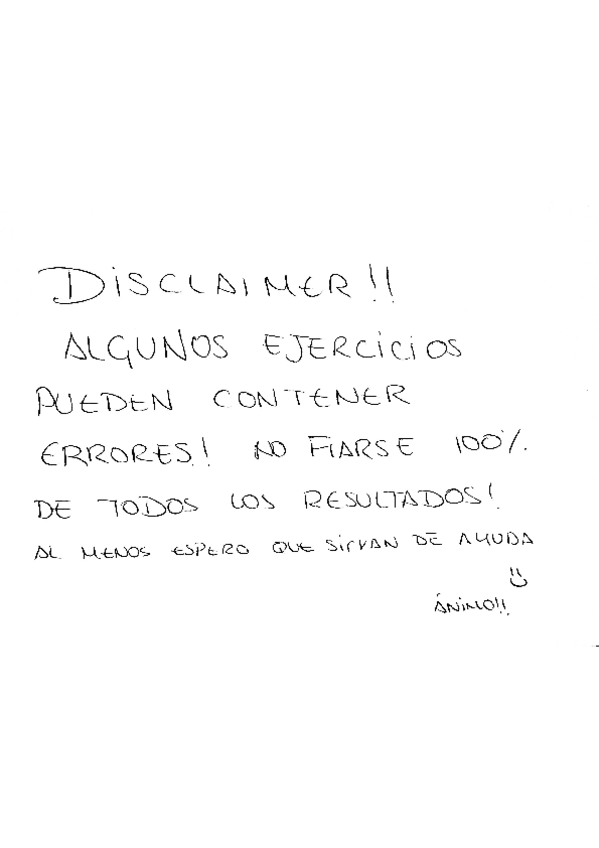 DISCLAIMER!!
ALGUNOS EJERCICIOS
PUEDEN CONTENER
ERRORES! NO FIARSE 100%
DE TODOS LOS RESULTADOS!
AL MENOS ESPERO QUE SIRVAN DE AYUDA
ÁNIMO!!